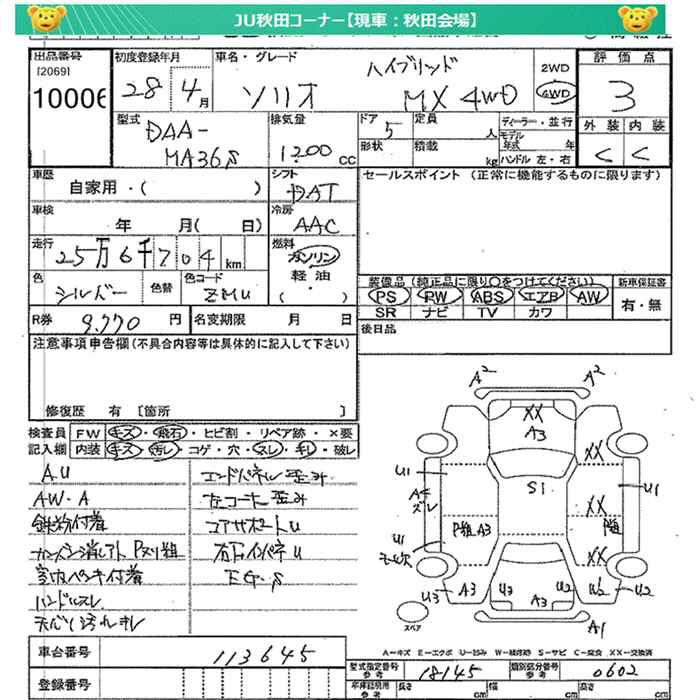 JU秋田コーナー【現車：秋田会場】
出品番号 初度登録年月 車名・グレード 評価点
[2069]
10006 28 4月 ソリオ ハイブリッド MX 4WD 2WD 4WD 3
型式 排気量 ドア 定員 ディーラー・並行 外装 内装
DAA-MA36S 1200 CC 5 人 モデル年式 年 C C
形状 積載 kg ハンドル 左・右
車歴 シフト セールスポイント (正常に機能するものに限ります)
自家用・( ) DAT
車検 冷房
年 月( 日) AAC
走行 燃料
25万6千704km ガソリン
軽油
( )
色 色替 色コード
シルバー ZMU
装備品(純正品に限り○をつけてください) 新車保証書
PS PW ABS エアB AW 有・無
SR ナビ TV カワ
R券 9,770 円 名変期限 月 日
後日品
注意事項申告欄(不具合内容等は具体的に記入して下さい)
修復歴 有 [箇所 ]
検査員 FW キズ・飛石・ヒビ割・リペア跡・×要
記入欄 内装 キズ・汚レ・コゲ・穴・スレ・キレ・破レ
A.U エンドパネル歪み
AW・A 左コーナー歪み
鉄粉付着 コアサポートU
カンバン消しアト Pスリ粗 右インパネU
室内ペンキ付着 EG.S
ハンドルスレ
天張り汚れ・キレ
A2 A2
XX
A3
XX
U1 S1 U1
Aキズレ XX
P粗 A3 P粗
U1 XX
U3 A3 U3 U2 W2 U2
A3
スペア A1
A－キズ E－エクボ U－凹み W－補修跡 S－サビ C－腐食 XX－交換済
車台番号 113645
型式指定番号 参考 18145 類別区分番号 参考 0602
登録番号
車庫証明用 参考 長さ cm 幅 cm 高さ cm